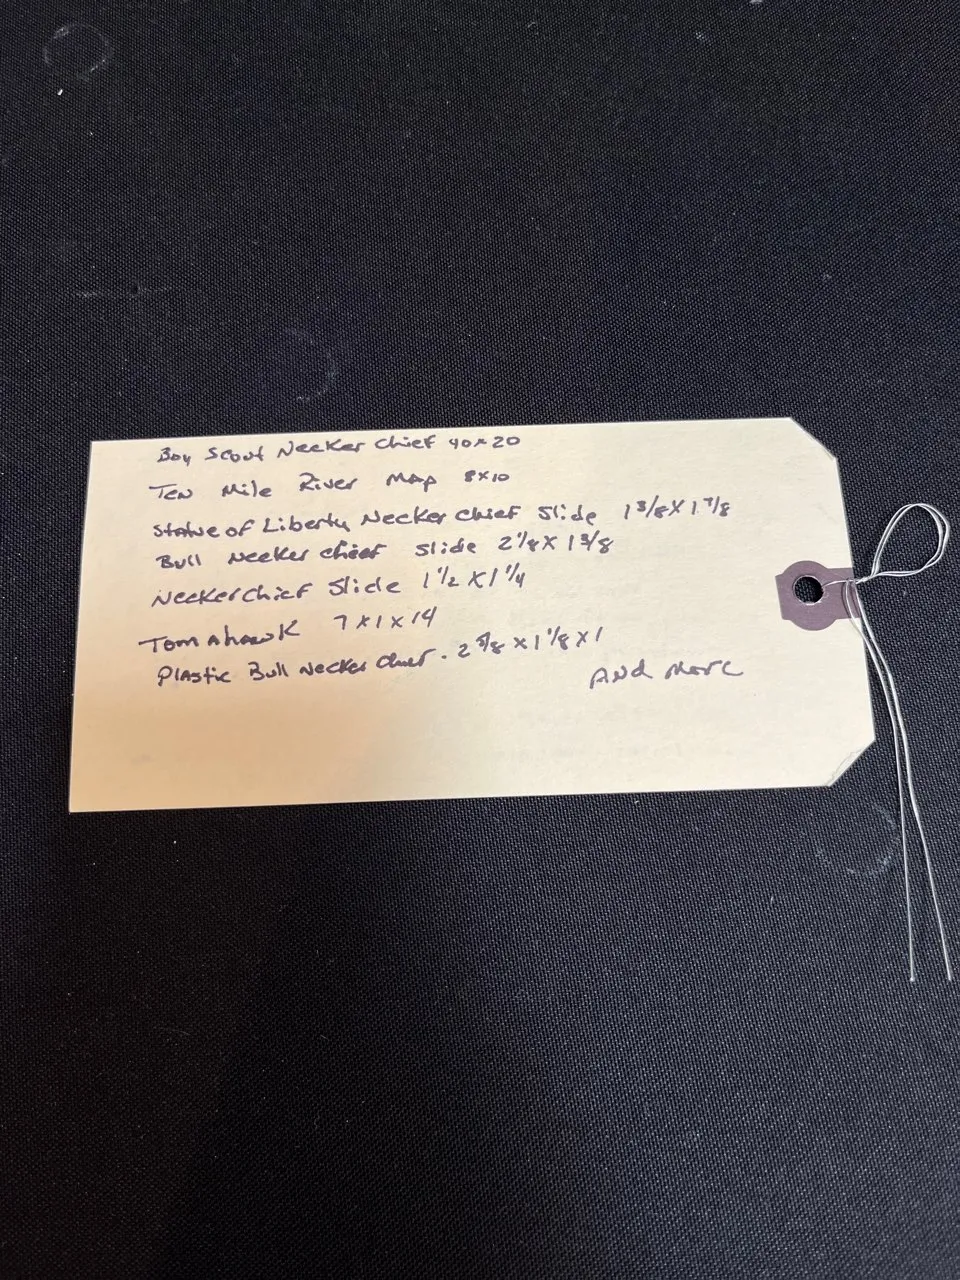 Boy Scout Necker Chief 40x20
Ten Mile River Map 8x10
Statue of Liberty Necker Chief Slide 1 3/8 X 1 7/8
Bull Necker Chief Slide 2 1/8 X 1 3/8
Necker Chief Slide 1 1/2 X 1 1/4
Tomahawk 7 x 1 x 14
Plastic Bull Necker Chief. 2 5/8 X 1 1/8 X 1
And More